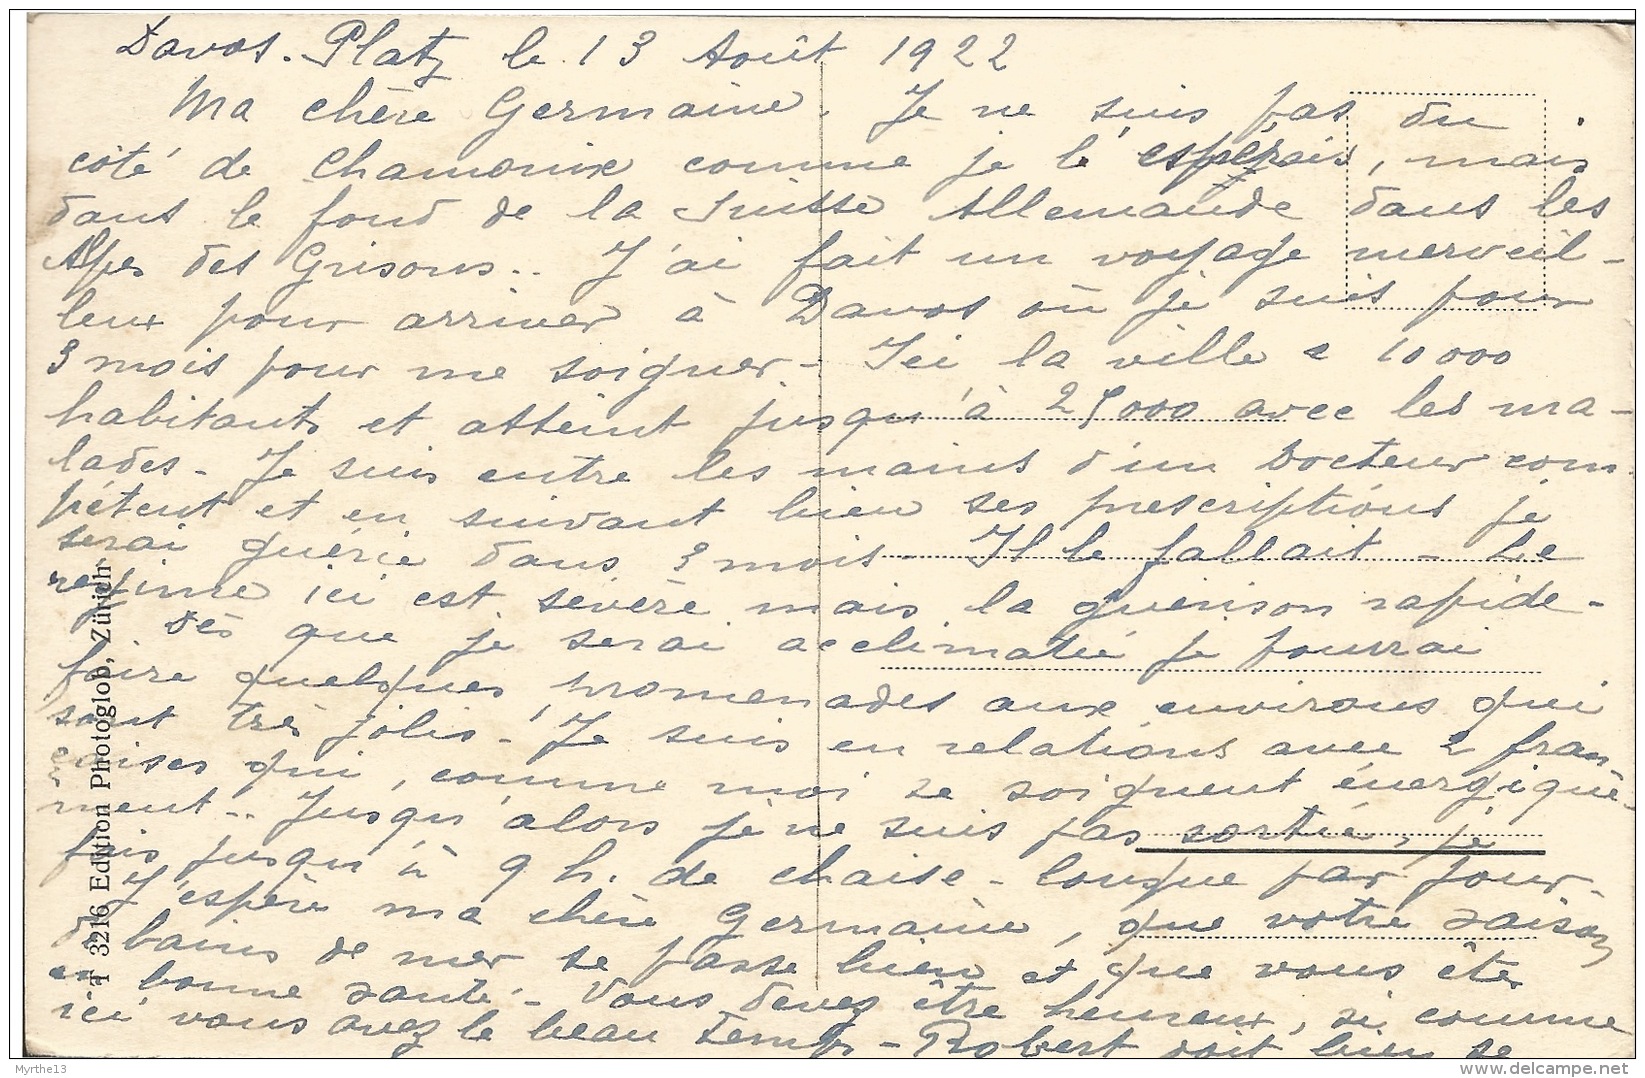 Davos-Platz le 13 Août 1922
Ma chère Germaine. Je ne suis pas du
côté de Chamonix comme je l'espérais, mais
dans le fond de la Suisse Allemande dans les
Alpes des Grisons.. J'ai fait un voyage merveil-
leux pour arriver à Davos où je suis pour
3 mois pour me soigner - Ici la ville a 10000
habitants et atteint jusqu'à 25000 avec les ma-
lades - Je suis entre les mains d'un Docteur com-
pétent et en suivant bien ses prescriptions je
serai guérie dans 3 mois - Il le fallait - Le
régime ici est sévère mais la guérison rapide -
Dès que je serai acclimatée je pourrai
faire quelques promenades aux environs qui
sont très jolis - Je suis en relations avec 2 fran-
çaises qui, comme moi se soignent énergique-
ment.. Jusqu'alors je ne suis pas sortie, je
fais jusqu'à 9 h. de chaise-longue par jour -
J'espère ma chère Germaine, que votre saison
de bains de mer se passe bien et que vous êtes
en bonne santé - Vous devez être heureux, si comme
ici vous avez le beau temps - Robert doit bien se
T 3216 Edition Photoglob, Zürich
Myrthe13
delcampe.net